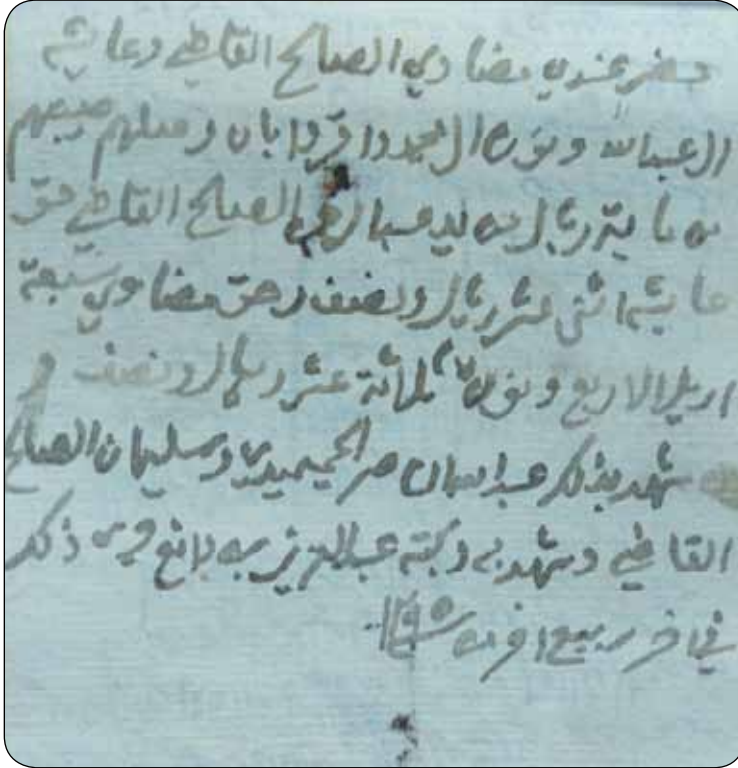 حضر عندي مضاوي الصالح القاضي وعايشه
العبدالله ونوره المحمد واقروا بان وصلهم نصيبهم
من ماية ريال من يد عبدالرحمن الصالح القاضي حق
عايشه اثنى عشر ريال ونصف وحق مضاوي سبعة
اريل الا ربع ونوره ثلاثة عشر ريال ونصف و
شهد بذلك عبدالله الحميدي وسليمان الصالح
القاضي وشهد به وكتبه عبدالعزيز بن مانع جرى ذلك
في اخر ربيع اخر سنة